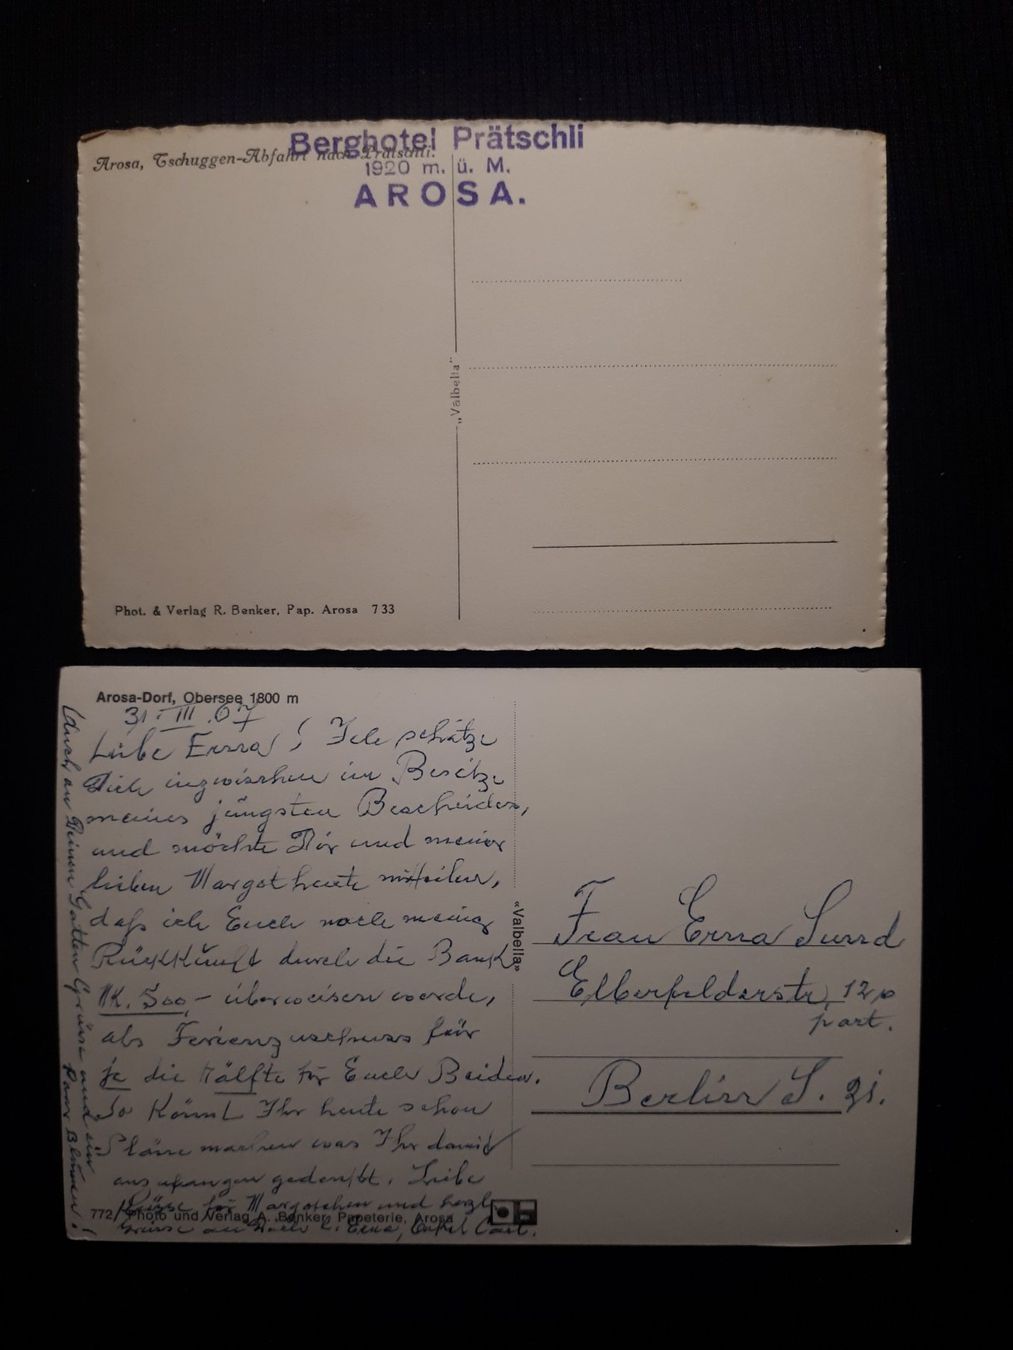 Berghotel Prätschli
Arosa, Tschuggen-Abfahrt nach Prätschli.
1920 m. ü. M.
AROSA.
„Valbella"
Phot. & Verlag R. Benker, Pap. Arosa 733
Arosa-Dorf, Obersee 1800 m
31. III. 67
Liebe Erna! Ich schätze
Dich inzwischen im Besitze
meines jüngsten Bescheides,
und möchte Dir und meiner
lieben Margot heute mitteilen,
daß ich Euch nach meiner
Rückkunft durch die Bank
M. 500,- überweisen werde,
als Ferienzuschuss für
je die Hälfte für Euch Beiden.
So könnt Ihr heute schon
Pläne machen was Ihr damit
anzufangen gedenkt. Liebe
Grüsse für Margotchen und herzl.
Grüsse an Dich l. Erna, Onkel Carl.
(Auch an Deinen Gatten Grüsse und ein
«Valbella»
Frau Erna Sund
Elberfelderstr. 12
part.
Berlin S. 21.
772 Photo und Verlag A. Benker, Papeterie, Arosa